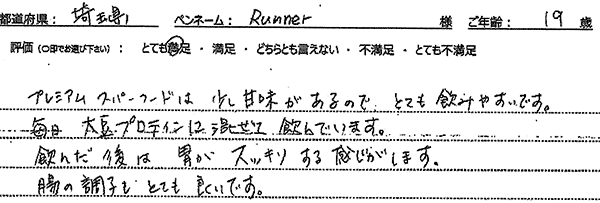 都道府県: 埼玉県 ペンネーム: Runner 様 ご年齢: 19 歳
評価(○印でお選び下さい): とても満足・満足・どちらとも言えない・不満足・とても不満足
プレミアムスーパーフードは少し甘味があるので、とても飲みやすいです。
毎日大豆プロテインに混ぜて飲んでいます。
飲んだ後は胃がスッキリする感じがします。
腸の調子もとても良いです。